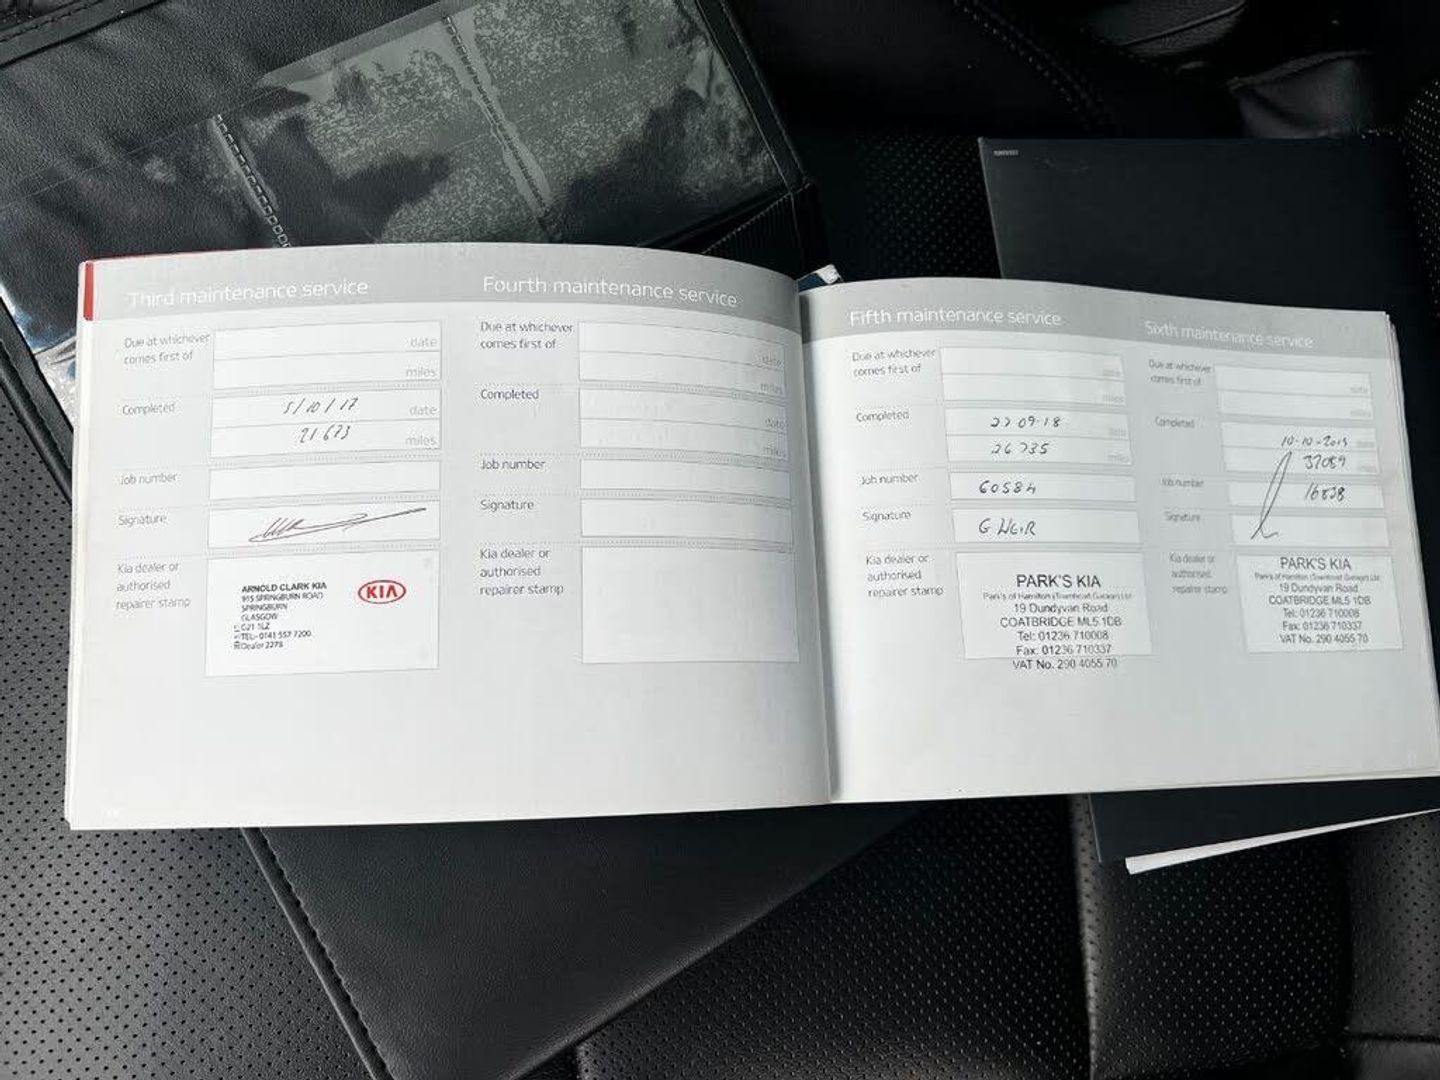 Third maintenance service
Due at whichever
comes first of
date
miles
Completed
5/10/17 date
21673 miles
Job number
Signature
Kia dealer or
authorised
repairer stamp
ARNOLD CLARK KIA
915 SPRINGBURN ROAD
SPRINGBURN
GLASGOW
G21 1LZ
TEL:- 0141 557 7200
Dealer 2278
KIA
Fourth maintenance service
Due at whichever
comes first of
date
miles
Completed
date
miles
Job number
Signature
Kia dealer or
authorised
repairer stamp
Fifth maintenance service
Due at whichever
comes first of
date
miles
Completed
27 09·18 date
26735 miles
Job number
60584
Signature
G WEIR
Kia dealer or
authorised
repairer stamp
PARK'S KIA
Park's of Hamilton (Townhead Garage) Ltd
19 Dundyvan Road
COATBRIDGE ML5 1DB
Tel: 01236 710008
Fax: 01236 710337
VAT No. 290 4055 70
Sixth maintenance service
Due at whichever
comes first of
date
miles
Completed
10-10-2019 date
37089 miles
Job number
16838
Signature
Kia dealer or
authorised
repairer stamp
PARK'S KIA
Park's of Hamilton (Townhead Garage) Ltd
19 Dundyvan Road
COATBRIDGE ML5 1DB
Tel: 01236 710008
Fax: 01236 710337
VAT No. 290 4055 70